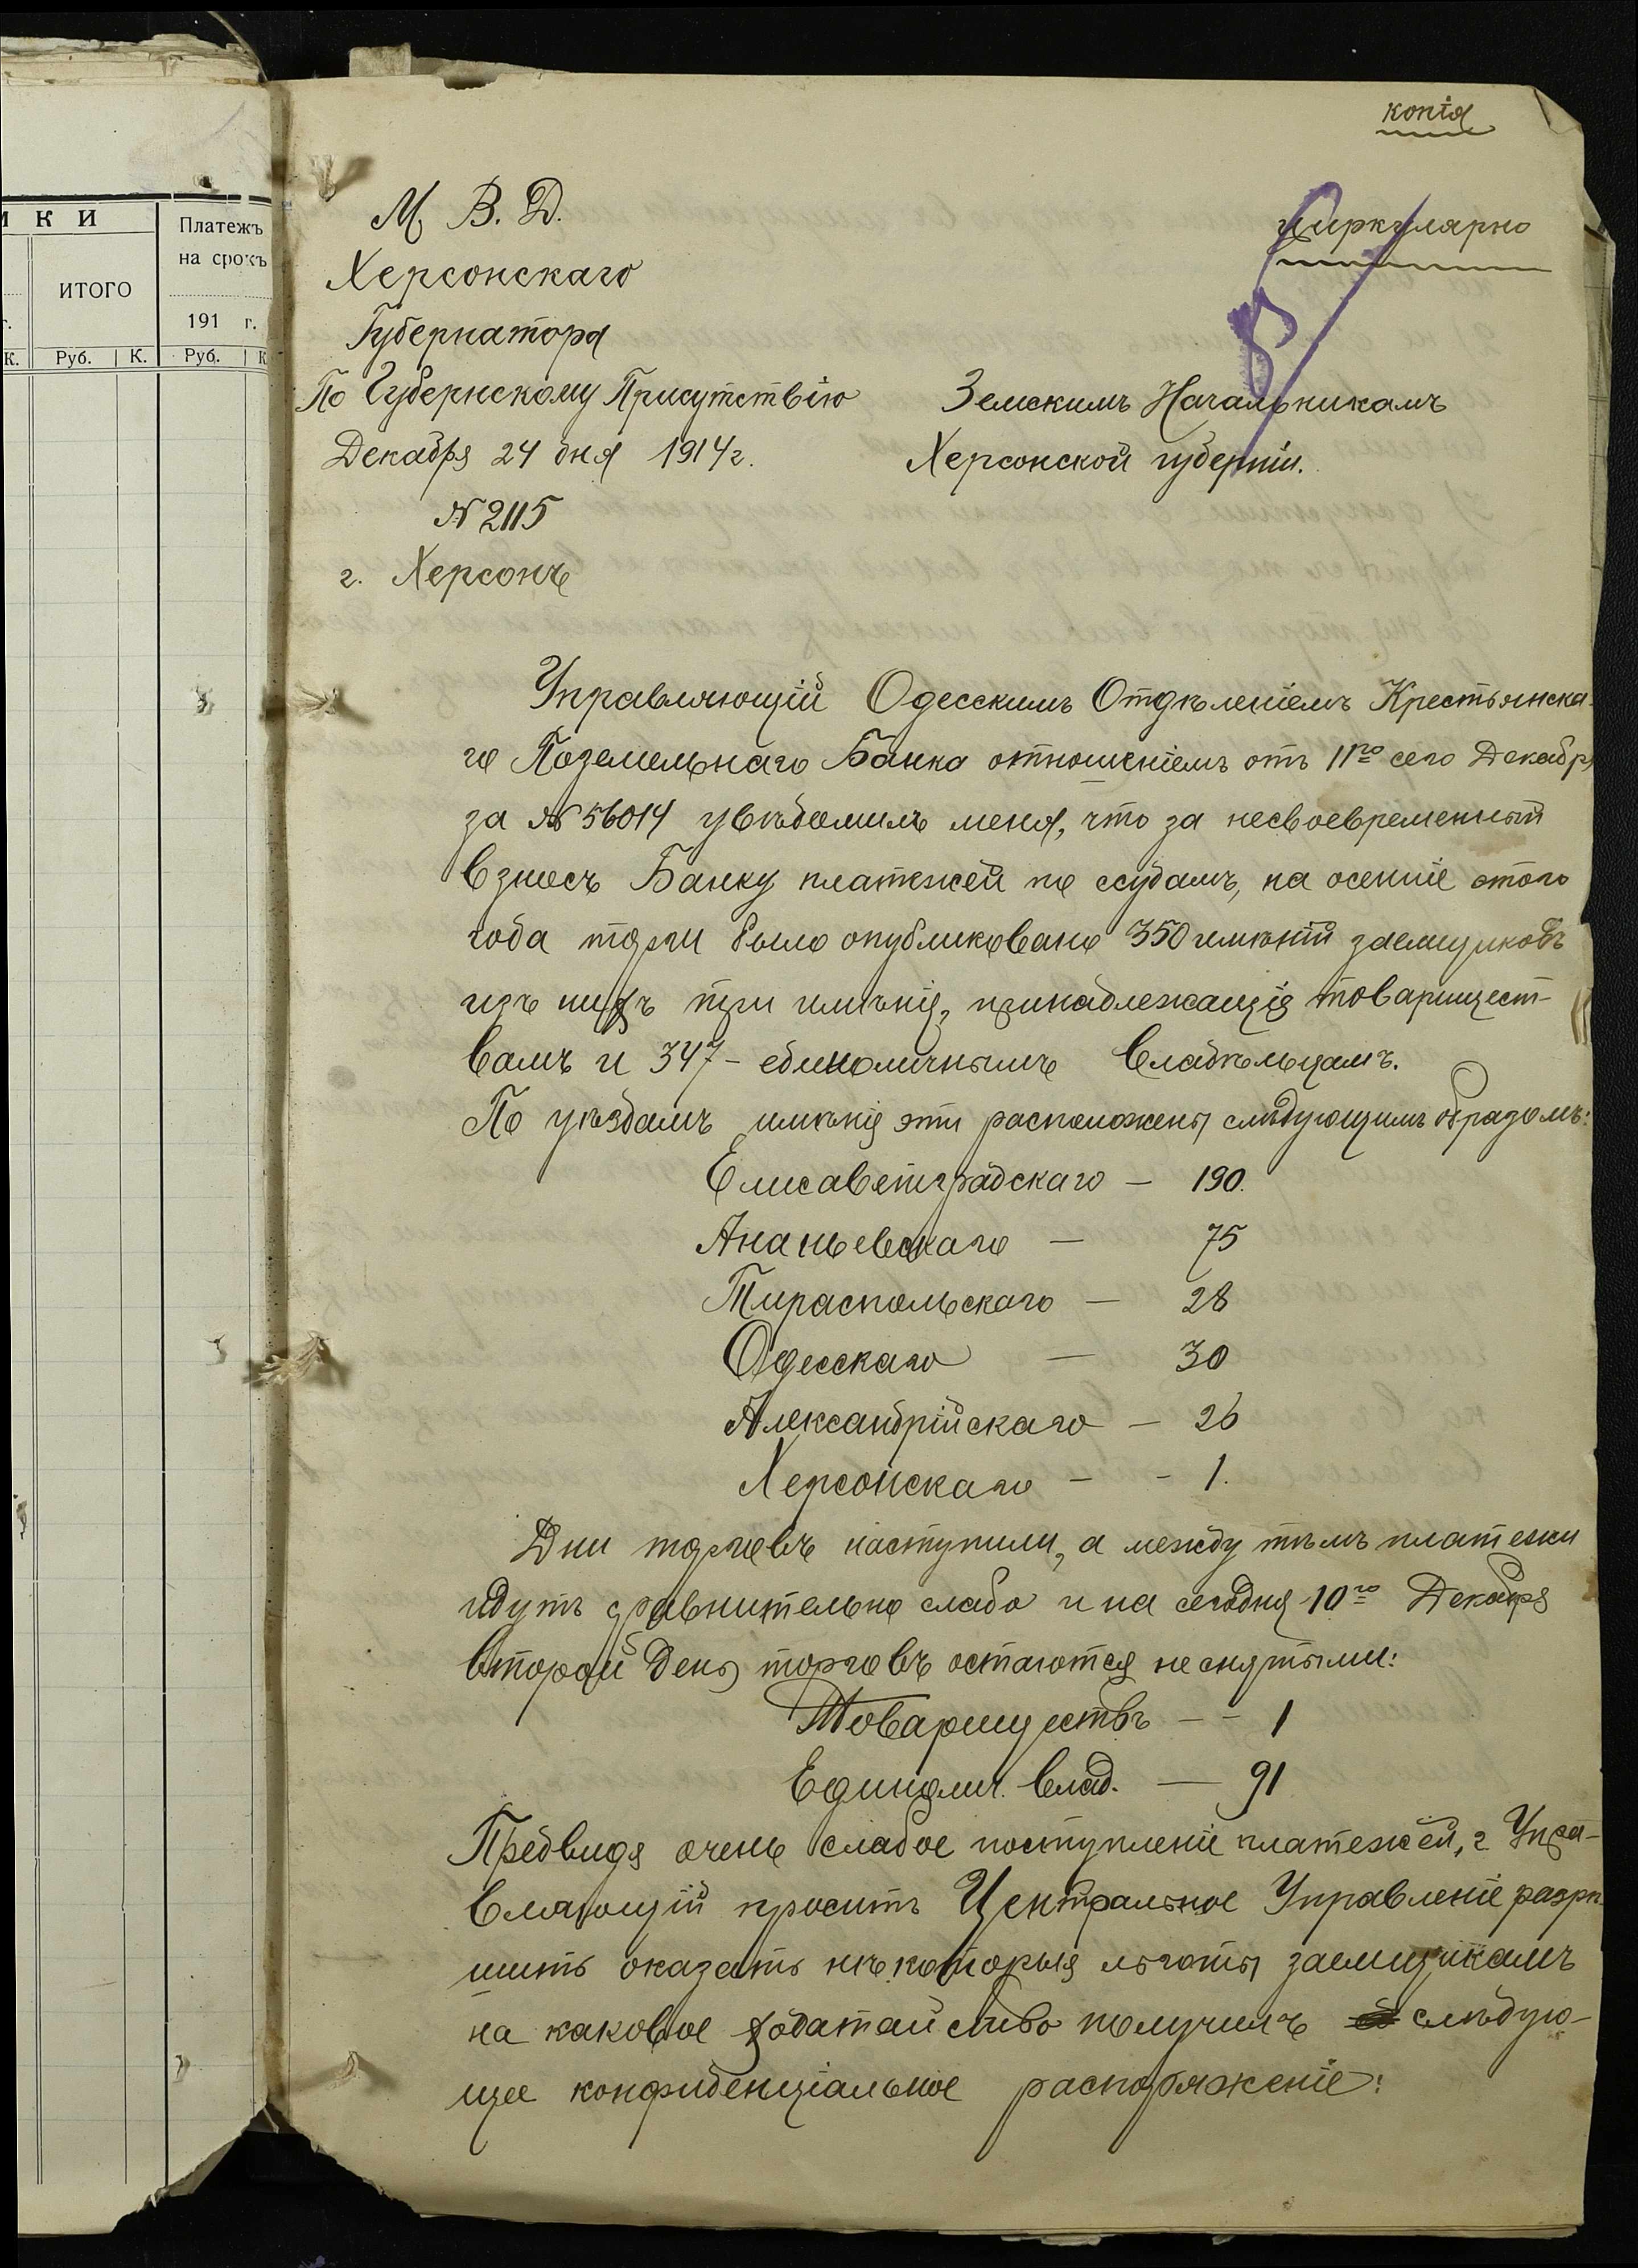 копія
М. В. Д.
Циркулярно
Херсонскаго
Губернатора
По Губернскому Присутствію
Земскимъ Начальникамъ
Декабря 24 дня 1914г.
Херсонской губерніи.
№ 2115
г. Херсонъ
Управляющій Одесскимъ Отдѣленіемъ Крестьянска-
го Поземельнаго Банка отношеніемъ отъ 11го сего Декабря
за № 56014 увѣдомилъ меня, что за несвоевременный
взносъ Банку платежей по ссудамъ, на осенніе этого
года торги было опубликовано 350 имѣній заемщиковъ
изъ нихъ три имѣнія, принадлежащія товарищест-
вамъ и 347 - единоличнымъ владѣльцамъ.
По уѣздамъ имѣнія эти расположены слѣдующимъ образомъ:
Елисаветградскаго — 190.
Ананьевскаго — 75
Тираспольскаго — 28
Одесскаго — 30
Александрійскаго — 26
Херсонскаго - - 1.
Дни торговъ наступили, а между тѣмъ платежи
идутъ сравнительно слабо и на сегодня 10го Декабря
второй день торговъ остаются не снятыми:
Товариществъ - - 1
Единолич. влад. — 91
Предвидя очень слабое поступленіе платежей, г. Упра-
вляющій проситъ Центральное Управленіе разрѣ-
шить оказать нѣкоторыя льготы заемщикамъ
на каковое ходатайство получилъ слѣдую-
щее конфиденціальное распоряженіе:
ИКИ
Платежъ
на срокъ
ИТОГО
191 г.
К. Руб. К. Руб. К